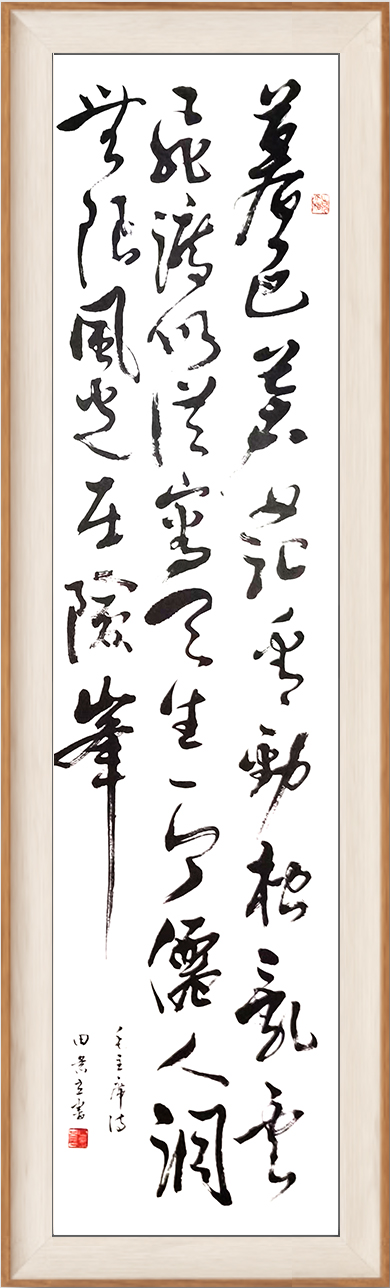 暮色蒼茫看勁松亂雲
飛渡仍從容天生一个僊人洞
無限風光在險峯
毛主席诗
田景立書